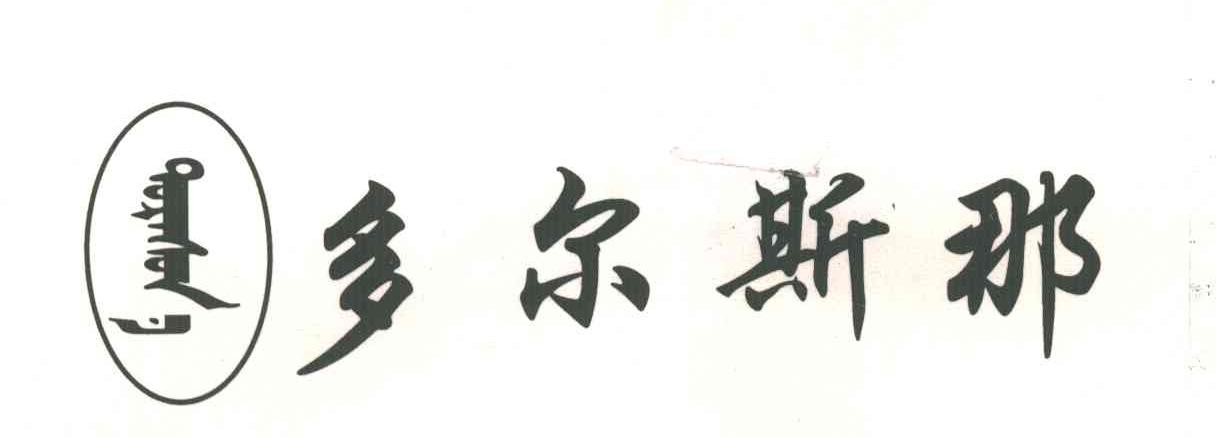 多尔斯那